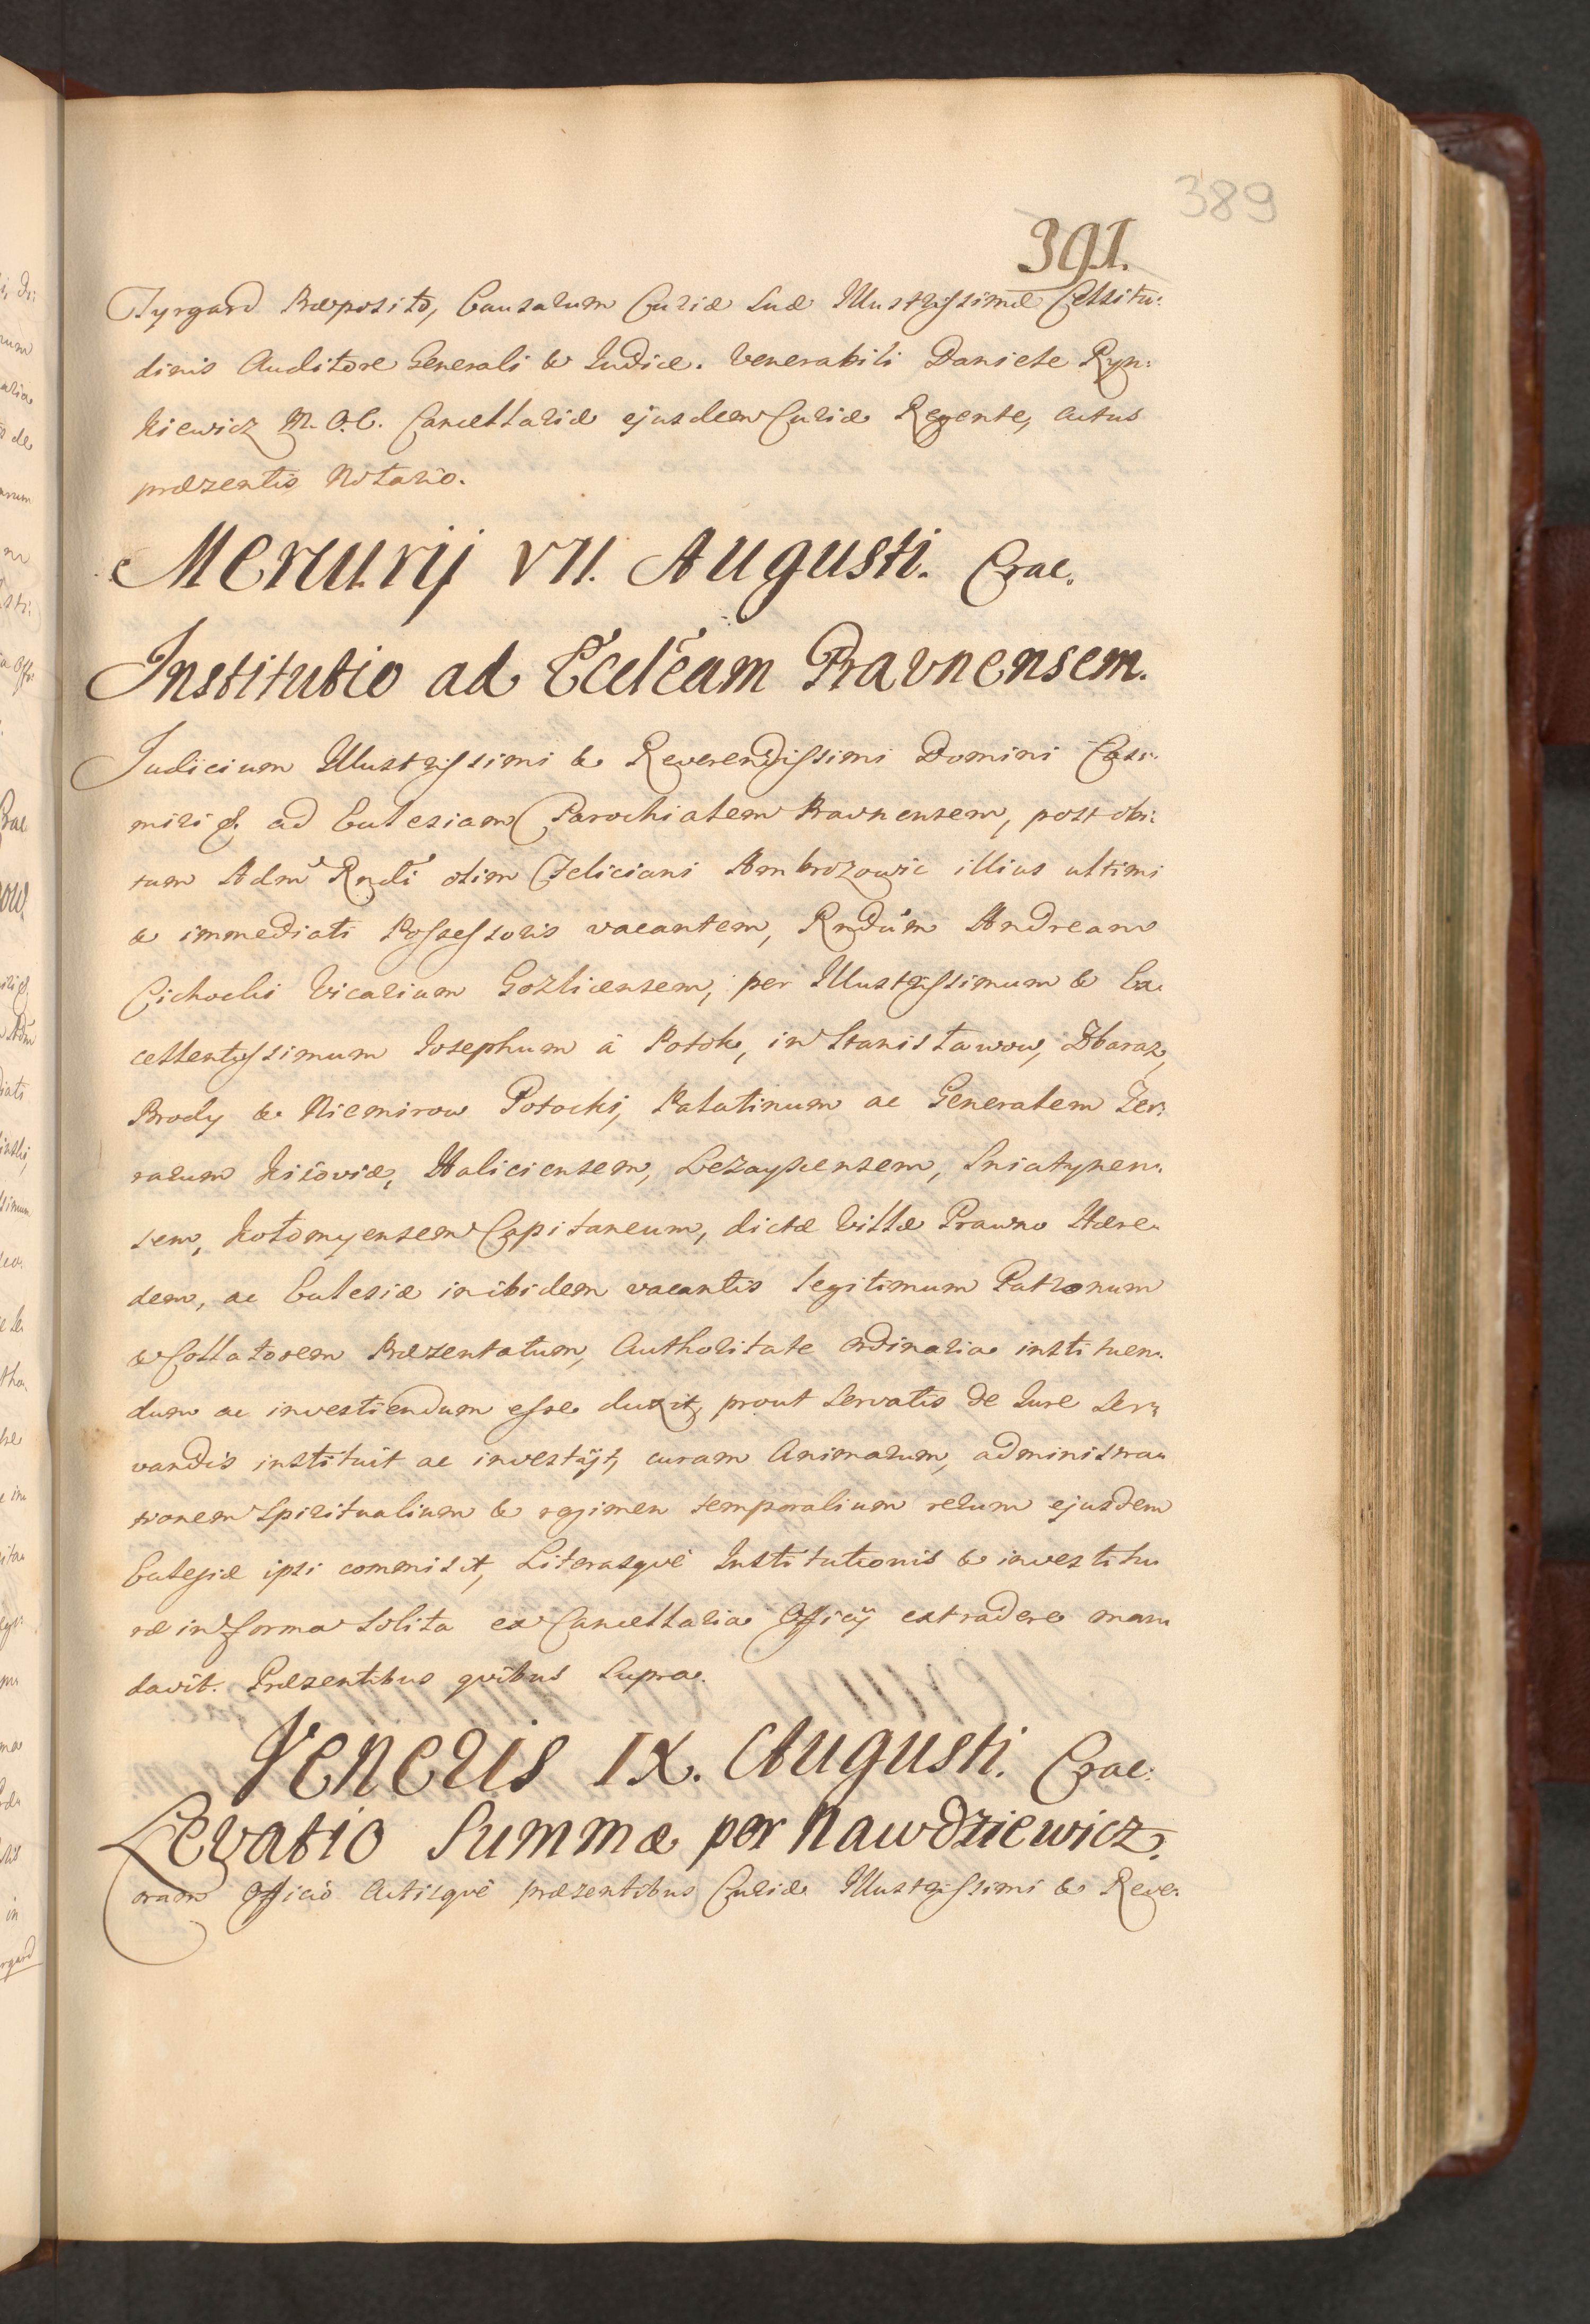 389
391.
Tyrgard Præposito, Causarum Curiæ Suæ Illustrissimæ Celsitu:
dinis Auditore Generali & Iudice. Venerabili Daniele Ryn:
kiewicz N. A. C. Cancellariæ ejusdem Curiæ Regente, Actus
præsentis Notario.
Mercurij VII. Augusti. Crac.
Institutio ad Eccleam Pravnensem.
Judicium Illustrissimi & Reverendissimi Domini Casi:
miri &. ad Eclesiam Parochialem Pravnensem, post obi:
tum Adm Rndi olim Feliciani Ambrozowic illius ultimi
& immediati Possessoris vacantem, Rndum Andream
Cichocki Vicarium Gozlicensem, per Illustrissimum & Ex:
cellentissimum Iosephum à Potok, in Stanisławow, Zbaraz,
Brody & Niemirow Potocki, Palatinum ac Generalem Ter:
rarum Kijoviæ, Haliciensem, Lezayscensem, Sniatynen:
sem, Kołomyensem Capitaneum, dictæ Villæ Prawno Hære:
dem, ac Eclesiæ inibidem vacantis legitimum Patronum
& Collatorem Præsentatum, Authoritate ordinaria instituen:
dum ac investiendum esse duxit, prout Servatis de Iure Ser:
vandis instituit ac investijt, curam Animarum, administra:
tionem Spiritualium & regimen temporalium rerum ejusdem
Eclesiæ ipsi commisit, Literasque Institutionis & investitu:
ræ in forma Solita ex Cancellaria Officij extradere man:
davit. Præsentibus quibus Supra.
Veneris IX. Augusti. Crac:
Levatio Summæ per Nawdziewicz.
Coram Officio Actisque præsentibus Curiæ Illustrissimi & Reve: